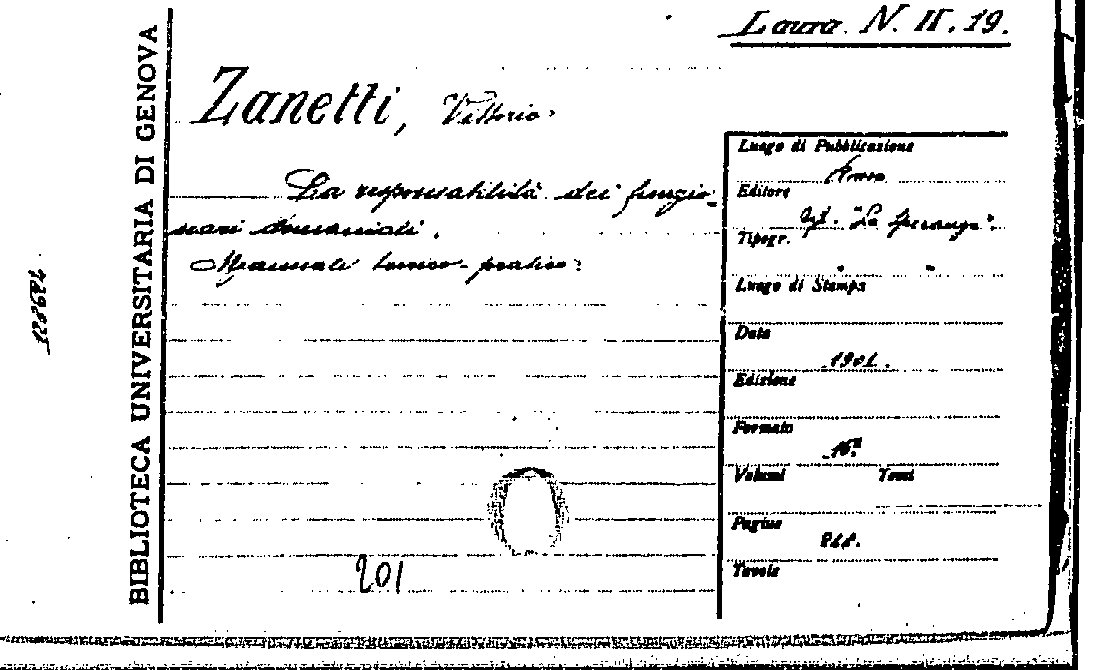 Laura. N. II. 19.
BIBLIOTECA UNIVERSITARIA DI GENOVA
Zanetti, Vittorio.
La responsabilità dei funzio-
nari demaniali.
Manuale teorico-pratico.
201
Luogo di Pubblicazione
Roma
Editore
Tip. "La Speranza".
Tipogr.
" "
Luogo di Stampa
Data
1901.
Edizione
Formato
16º
Volumi Tomi
Pagine
Tavole